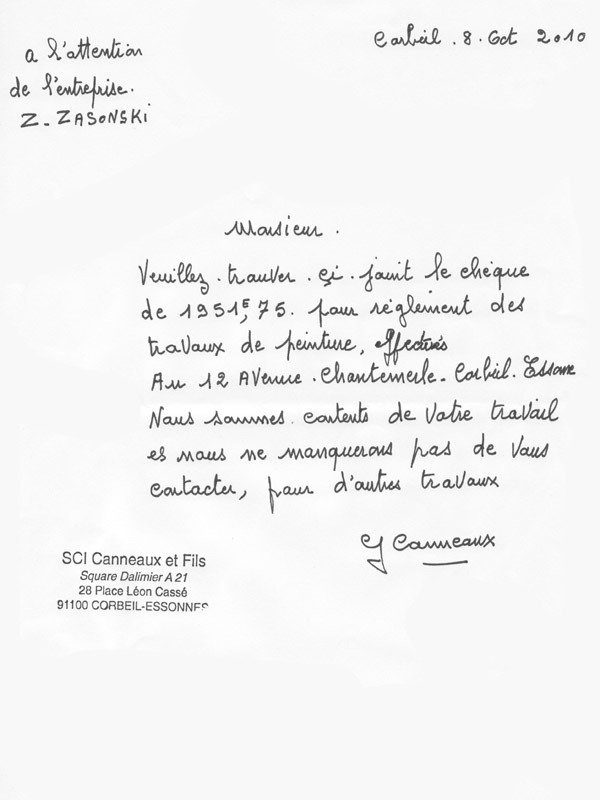 Corbeil . 8 . Oct 2010
a l'attention
de l'entreprise.
Z - ZASONSKi
Monsieur .
Veuillez trouver çi joint le chèque
de 1951,€75. pour règlement des
travaux de peinture, effectués
Au 12 Avenue . Chantemerle - Corbeil . Essonne
Nous sommes contents de votre travail
et nous ne manquerons pas de vous
contacter, pour d'autres travaux
G Canneaux
SCI Canneaux et Fils
Square Dalimier A 21
28 Place Léon Cassé
91100 CORBEIL-ESSONNES